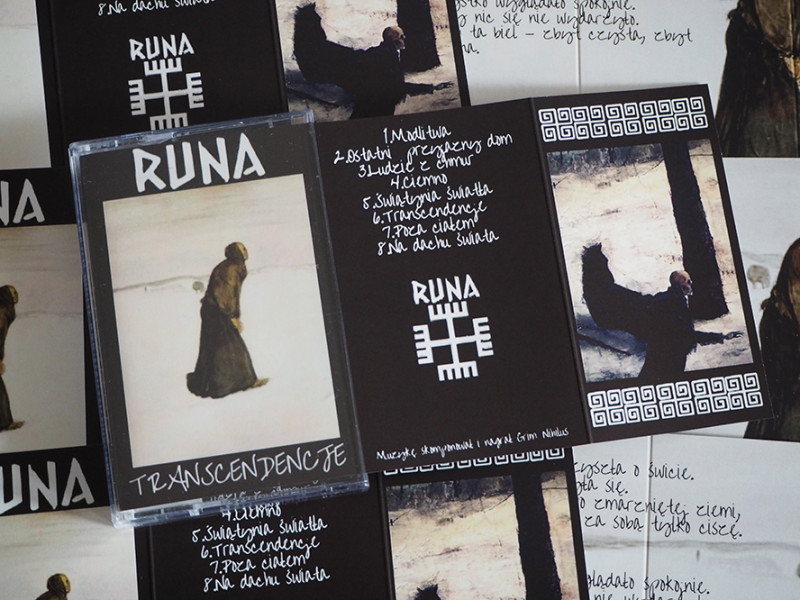 8.Na dachu świata
RUNA
wyglądało spokojnie.
nic się nie wydarzyło.
ta biel – zbyt czysta, zbyt
RUNA
TRANSCENDENCJE
1.Modlitwa
2.Ostatni przyjazny dom
3.Ludzie z chmur
4.Ciemno
5.Świątynia światła
6.Transcendencje
7.Poza ciałem
8.Na dachu świata
RUNA
Muzykę skomponował i nagrał Grim Nihilus
4.Ciemno
5.Świątynia światła
6.Transcendencje
7.Poza ciałem
8.Na dachu świata
o świcie.
się.
zmarzniętej ziemi,
za sobą tylko ciszę.
spokojnie.